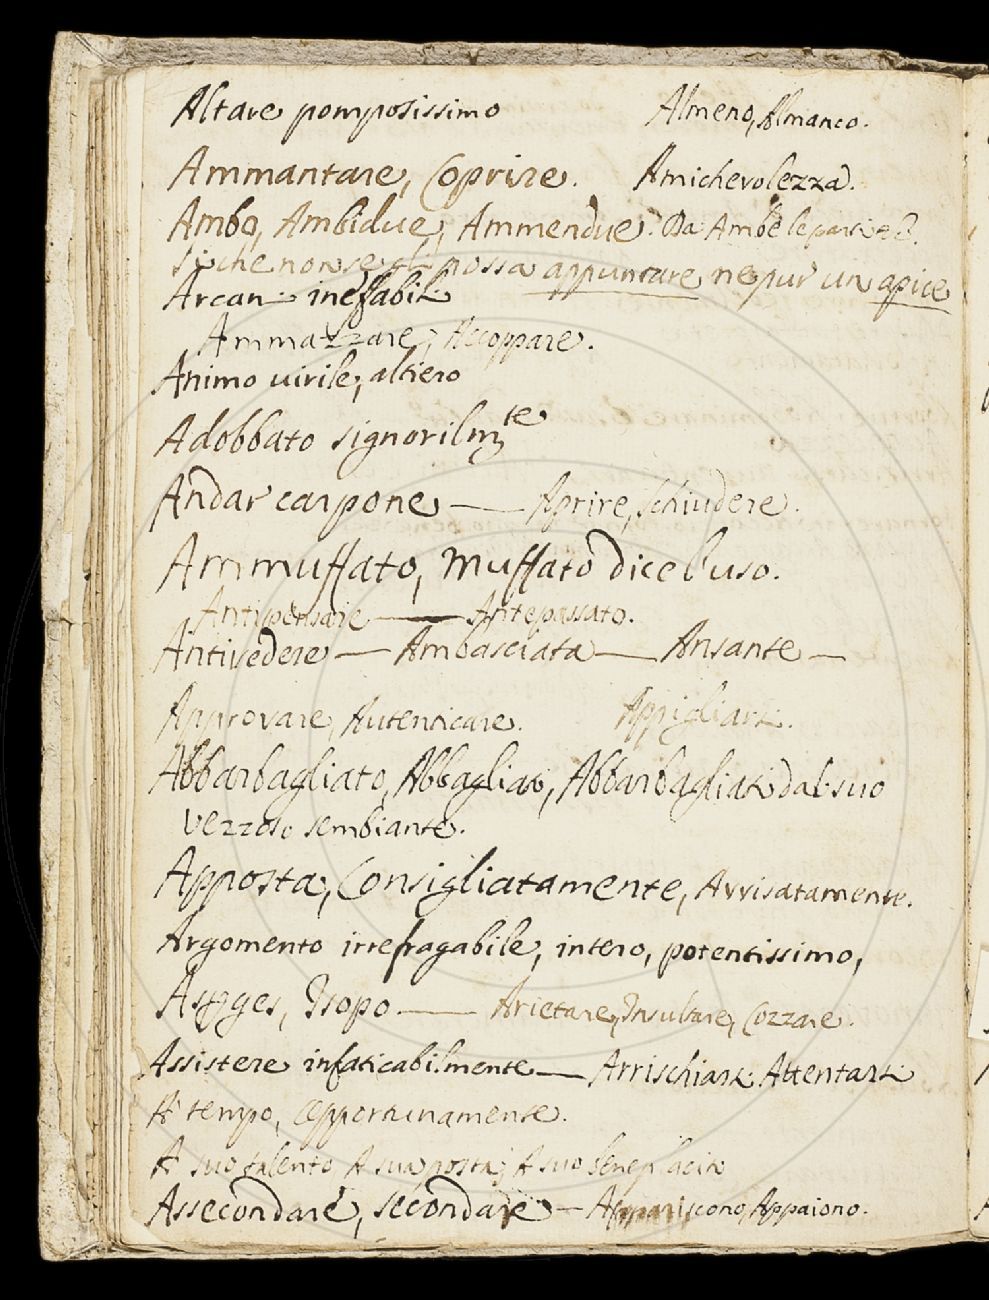 Altare pomposissimo Almeno, Almanco.
Ammantare, Coprire. Amichevolezza.
Ambo, Ambidue, Ammendue. Da Ambe le parti
siche non se gli possa appuntare ne pur un apice
Arcani ineffabili
Ammazzare, Accoppare.
Animo virile, altiero
Adobbato signorilmte
Andar carpone — Aprire, Schiudere.
Ammuffato, Muffato dice l'uso.
Antipensare — Antepassato.
Antivedere — Ambasciata — Ansante —
Approvare, Autenticare. Appigliarsi.
Abbarbagliato, Abbagliato, Abbarbagliati dal suo
vezzoso sembiante.
Apposta, Consigliatamente, Avvisatamente.
Argomento irrefragabile, intero, potentissimo,
Isopo — Arietare, Insultare, Cozzare.
Assistere infaticabilmente — Arrischiarsi Attentarsi
A tempo, opportunamente.
A suo talento A sua posta, A suo beneplacito
Assecondare, secondare — Appariscono, Appaiono.